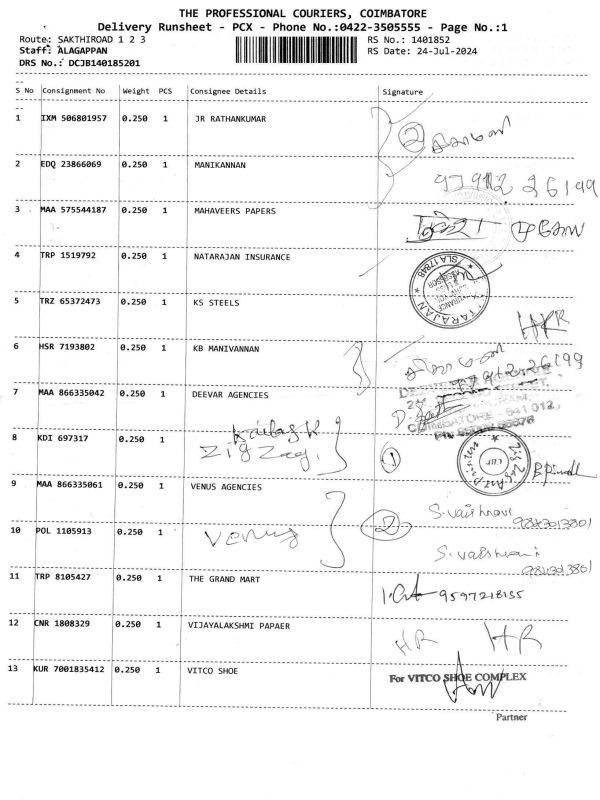 THE PROFESSIONAL COURIERS, COIMBATORE
Delivery Runsheet - PCX - Phone No.:0422-3505555 - Page No.:1
Route: SAKTHIROAD 1 2 3 RS No.: 1401852
Staff: ALAGAPPAN RS Date: 24-Jul-2024
DRS No.: DCJB140185201
S No Consignment No Weight PCS Consignee Details Signature
1 IXM 506801957 0.250 1 JR RATHANKUMAR 2
2 EDQ 23866069 0.250 1 MANIKANNAN
3 MAA 575544187 0.250 1 MAHAVEERS PAPERS
4 TRP 1519792 0.250 1 NATARAJAN INSURANCE
SLA17848
5 TRZ 65372473 0.250 1 KS STEELS
6 HSR 7193802 0.250 1 KB MANIVANNAN
7 MAA 866335042 0.250 1 DEEVAR AGENCIES
COIMBATORE - 641 012
Kailash
8 KDI 697317 0.250 1 Zig Zag. 1
9 MAA 866335061 0.250 1 VENUS AGENCIES
S. Vaishnavi
9843013801
10 POL 1105913 0.250 1 Venus 2
S. Vaishnavi
9843013801
11 TRP 8105427 0.250 1 THE GRAND MART 9597218155
12 CNR 1808329 0.250 1 VIJAYALAKSHMI PAPAER HR HR
13 KUR 7001835412 0.250 1 VITCO SHOE For VITCO SHOE COMPLEX
Partner